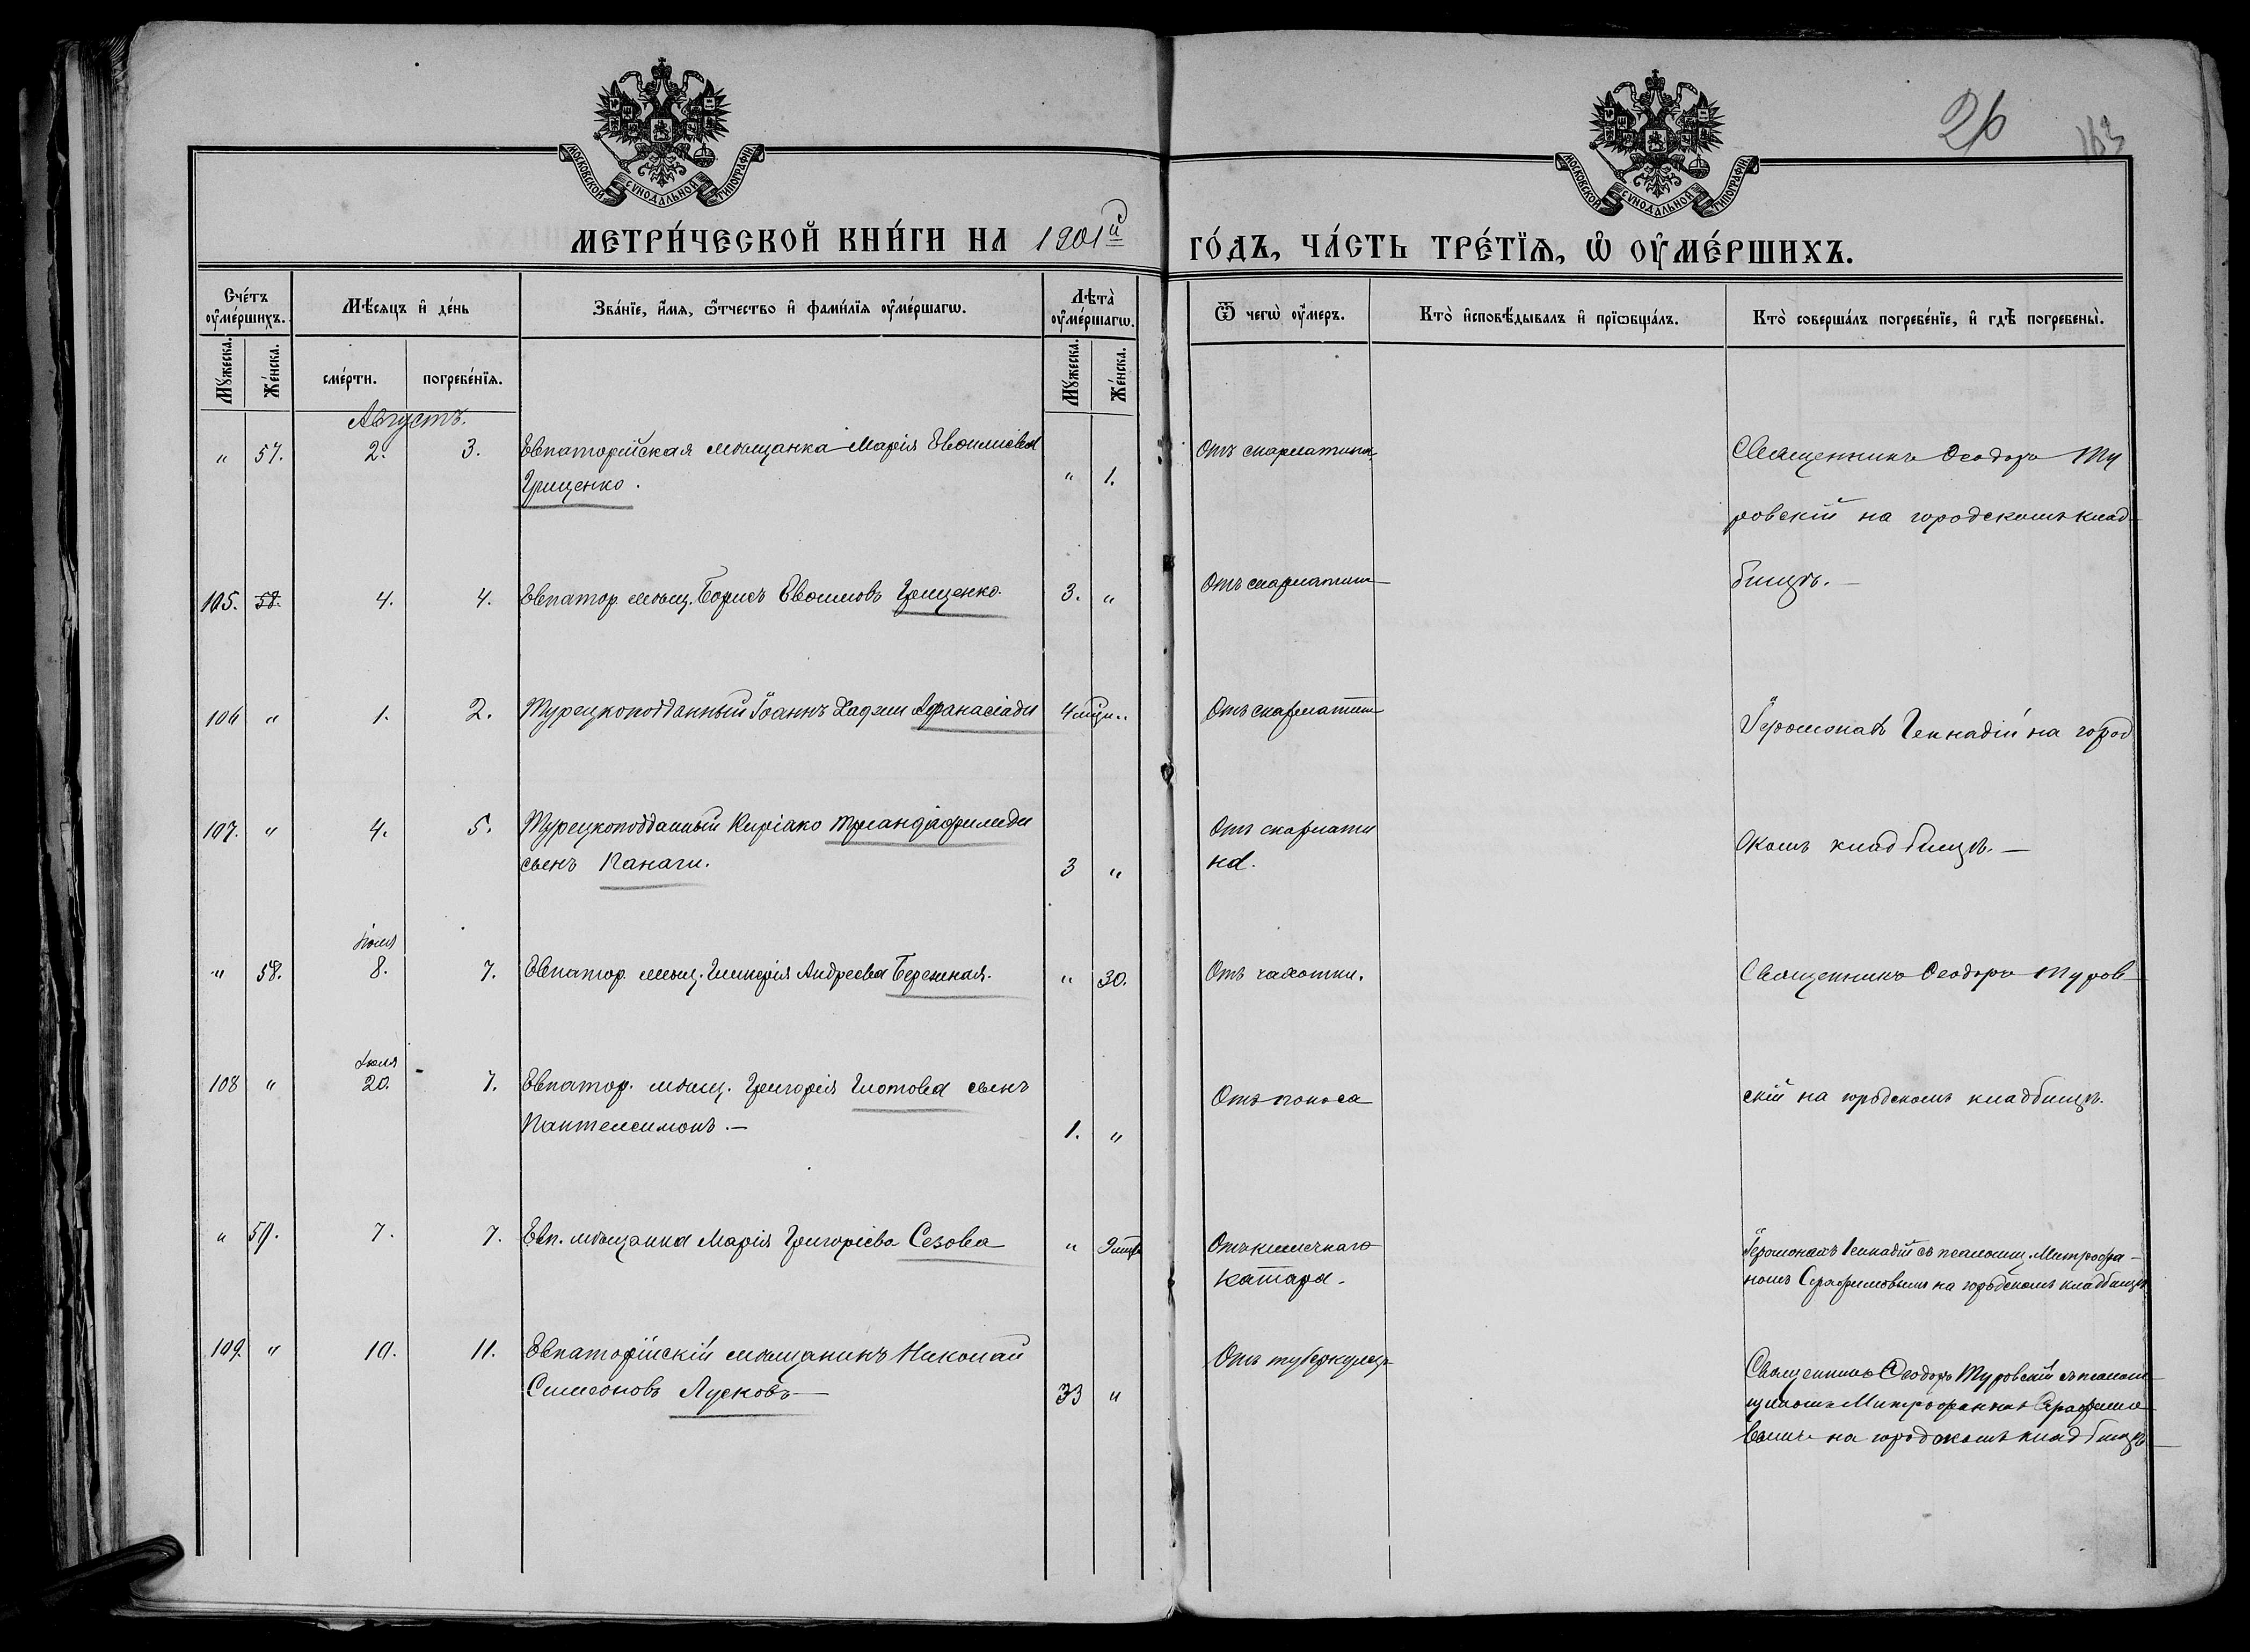 МОСКОВСКОЙ СѴНОДАЛЬНОЙ ТИПОГРАФІИ
МОСКОВСКОЙ СѴНОДАЛЬНОЙ ТИПОГРАФІИ
26
163
МЕТРИ́ЧЕСКОЙ КНИ́ГИ НА 1901й
ГО́ДЪ, ЧА́СТЬ ТРЕ́ТІѦ, Ѽ ОУ҆МЕ́РШИХЪ.
Сче́тъ оу҆ме́ршихъ.
Мѣ́сяцъ и҆ де́нь
Зва́нїе, и҆́мя, ѻ҆́тчество и҆ фамі́лїя оу҆ме́ршагѡ.
Лѣта̀ оу҆ме́ршагѡ.
Ѿ чегѡ̀ оу҆́меръ.
Кто̀ и҆сповѣ́дывалъ и҆ прїѡбща́лъ.
Кто̀ соверша́лъ погребе́нїе, и҆ гдѣ̀ погребены̀.
Му́жеска.
Же́нска.
сме́рти.
погребе́нїя.
Му́жеска.
Же́нска.
Августъ.
" 57. 2. 3. Евпаторійская мѣщанка Марія Евѳиміева
Грищенко. " 1. Отъ скарлатины
Священникъ Ѳеодоръ Ту
ровскій на городскомъ клад-
105. 58. 4. 4. Евпатор. мѣщ. Борисъ Евѳимовъ Грищенко. 3. " Отъ скарлатин
бищѣ.—
106 " 1. 2. Турецкоподданный Іоаннъ Хаджи Афанасіади 4 мѣц. " Отъ скарлатин
Іеромонахъ Геннадій на город
107. " 4. 5. Турецкоподданный Киріако Триандафилиди
сынъ Панаги. 3 " Отъ скарлати
на.
скомъ кладбищѣ.—
Іюля
" 58. 8. 7. Евпатор. мѣщ. Гликерія Андреева Бережная. " 30. Отъ чахотки.
Священникъ Ѳеодоръ Туров-
Іюля
108 " 20. 7. Евпатор. мѣщ. Григорія Глотова сынъ
Пантелеимонъ.— 1. " Отъ поноса
скій на городскомъ кладбищѣ.
" 59. 7. 7. Евп. мѣщанка Марія Григоріева Сезова " 9 мѣц. Отъ кишечнаго
катара.
Іеромонахъ Геннадій съ псаломщ. Митрофа-
номъ Серафимовымъ на городскомъ кладбищѣ
109. " 10. 11. Евпаторійскій мѣщанинъ Николай
Симеоновъ Лусковъ— 33 " Отъ туберкулеза
Священникъ Ѳеодоръ Туровскій съ псалом-
щикомъ Митрофаномъ Серафимо-
вымъ на городскомъ кладбищѣ